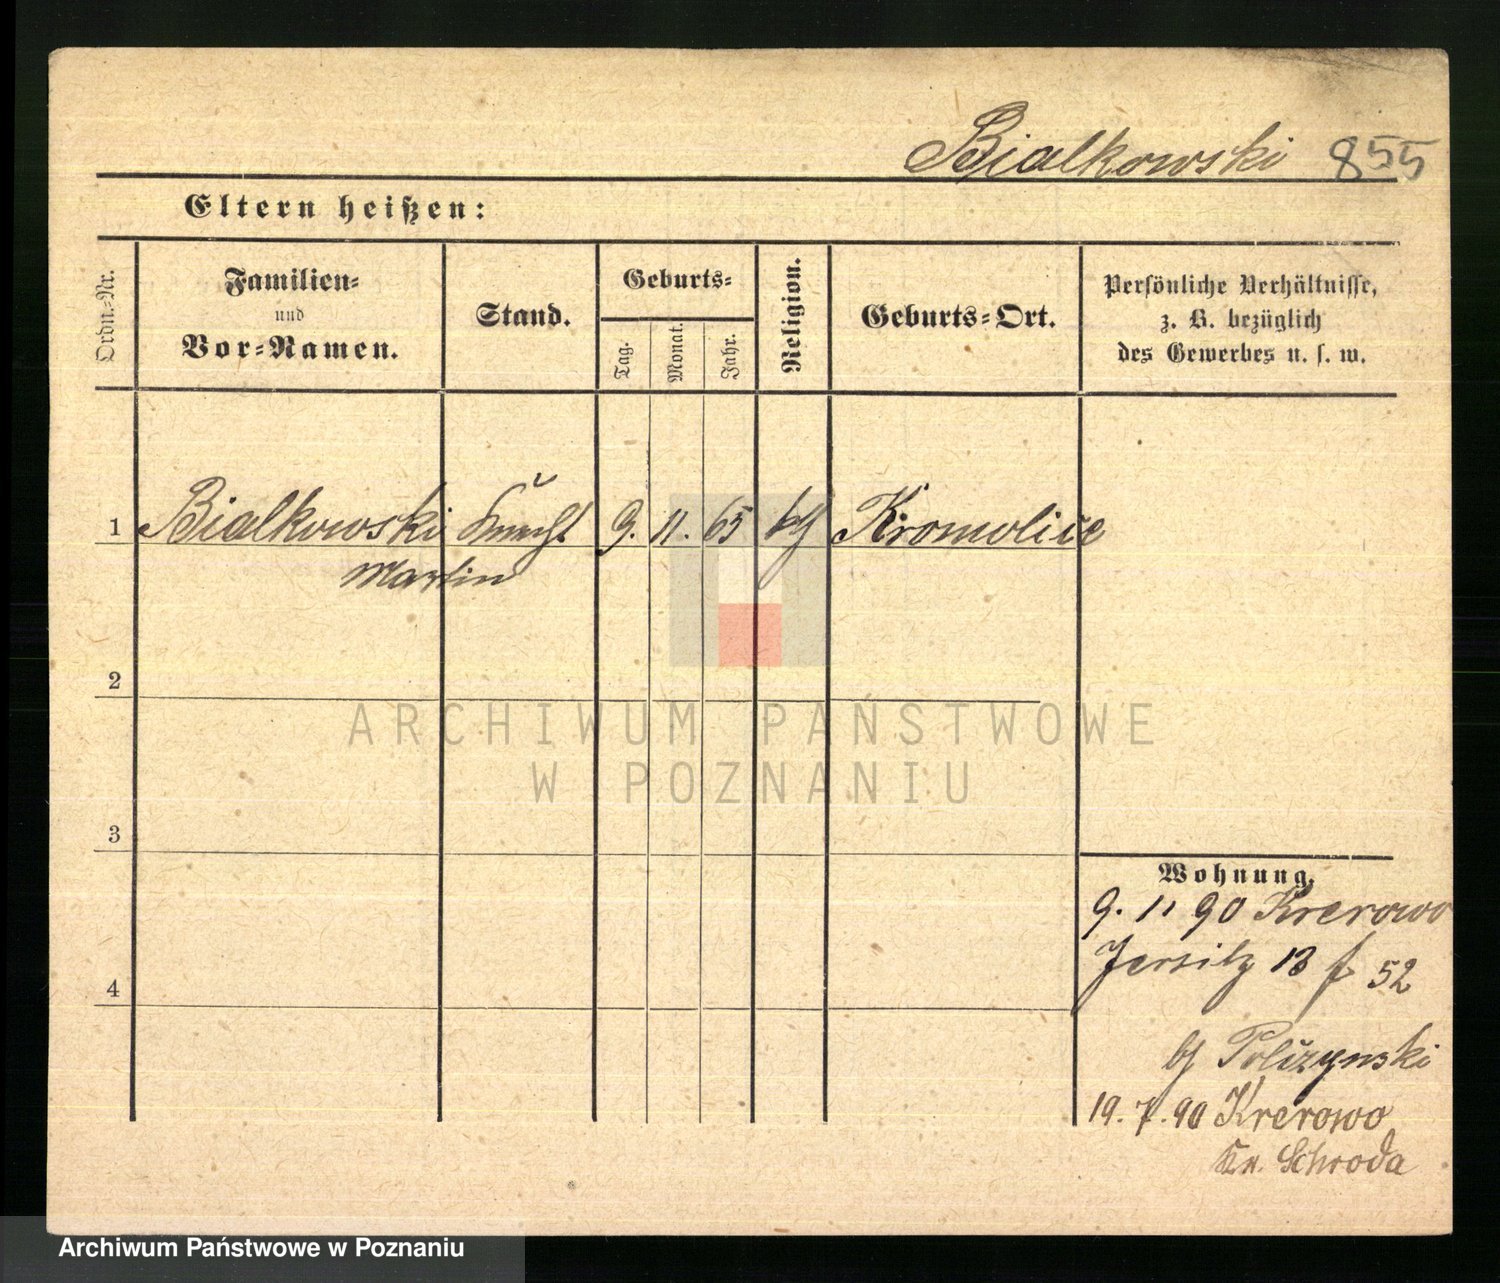 Bialkowski 855
Eltern heißen:
Ordn.-Nr.
Familien-
und
Vor-Namen.
Stand.
Geburts-
Tag.
Monat.
Jahr.
Religion.
Geburts-Ort.
Persönliche Verhältnisse,
z. B. bezüglich
des Gewerbes u. s. w.
1 Bialkowski Knecht 9. 11. 65 kth Kromolice
Martin
2
3
4
Wohnung.
9. 11 90 Krerowo
Jersitz 13 f 52
by Polczynski
19. 7. 90 Krerowo
Kr. Schroda
ARCHIWUM PAŃSTWOWE
W POZNANIU
Archiwum Państwowe w Poznaniu